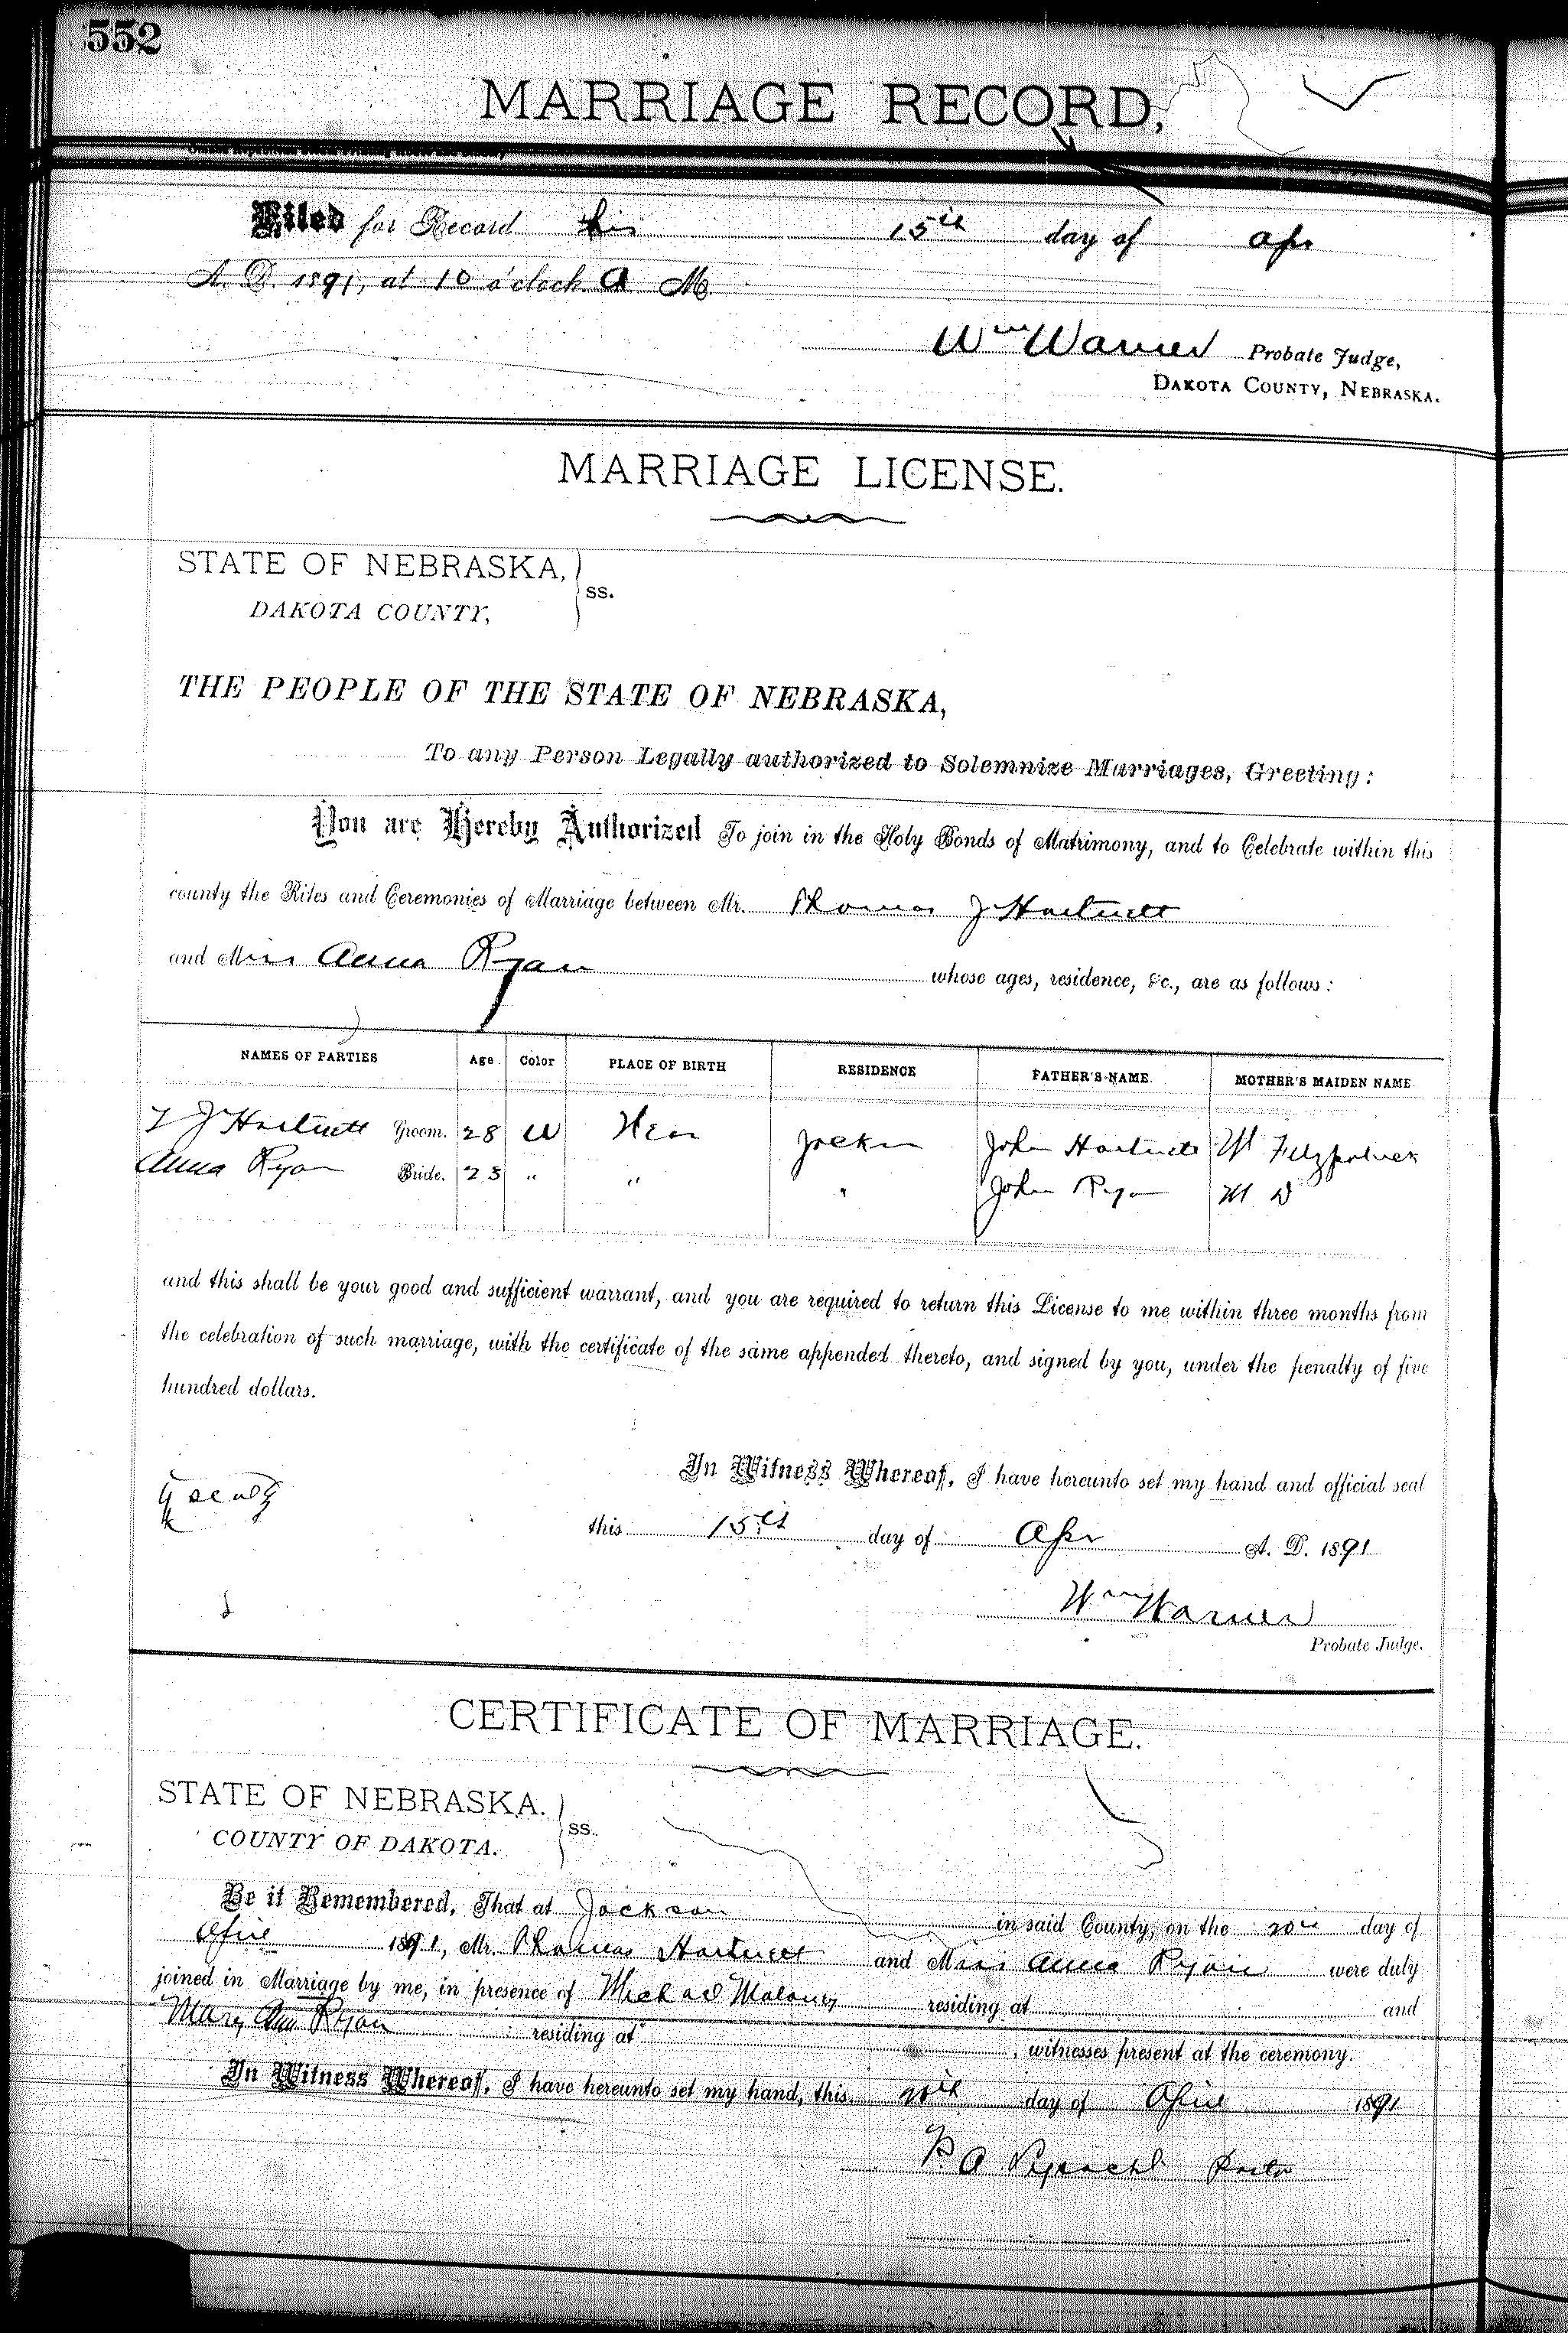 552
MARRIAGE RECORD,
Filed for Record this 15th day of Apr
A. D. 1891, at 10 o'clock A M.
Wm Warner Probate Judge,
DAKOTA COUNTY, NEBRASKA.
MARRIAGE LICENSE.
STATE OF NEBRASKA, ss.
DAKOTA COUNTY,
THE PEOPLE OF THE STATE OF NEBRASKA,
To any Person Legally authorized to Solemnize Marriages, Greeting:
You are Hereby Authorized To join in the Holy Bonds of Matrimony, and to Celebrate within this
county the Rites and Ceremonies of Marriage between Mr. Thomas J Hartnett
and Miss Anna Ryan whose ages, residence, &c., are as follows:
NAMES OF PARTIES Age Color PLACE OF BIRTH RESIDENCE FATHER'S NAME MOTHER'S MAIDEN NAME
T J Hartnett Groom. 28 W Jackn John Hartnett M Fitzpatrick
Anna Ryan Bride. 23 " " " John Ryan M D
and this shall be your good and sufficient warrant, and you are required to return this License to me within three months from
the celebration of such marriage, with the certificate of the same appended thereto, and signed by you, under the penalty of five
hundred dollars.
In Witness Whereof, I have hereunto set my hand and official seal
seal
this 15th day of Apr A. D. 1891
Wm Warner
Probate Judge.
CERTIFICATE OF MARRIAGE.
STATE OF NEBRASKA. ss.
COUNTY OF DAKOTA.
Be it Remembered, That at Jackson in said County, on the 20th day of
April 1891, Mr. Thomas Hartnett and Miss Anna Ryan were duly
joined in Marriage by me, in presence of Michael Maloney residing at and
Mary Ann Ryan residing at , witnesses present at the ceremony.
In Witness Whereof, I have hereunto set my hand, this 20th day of April 1891